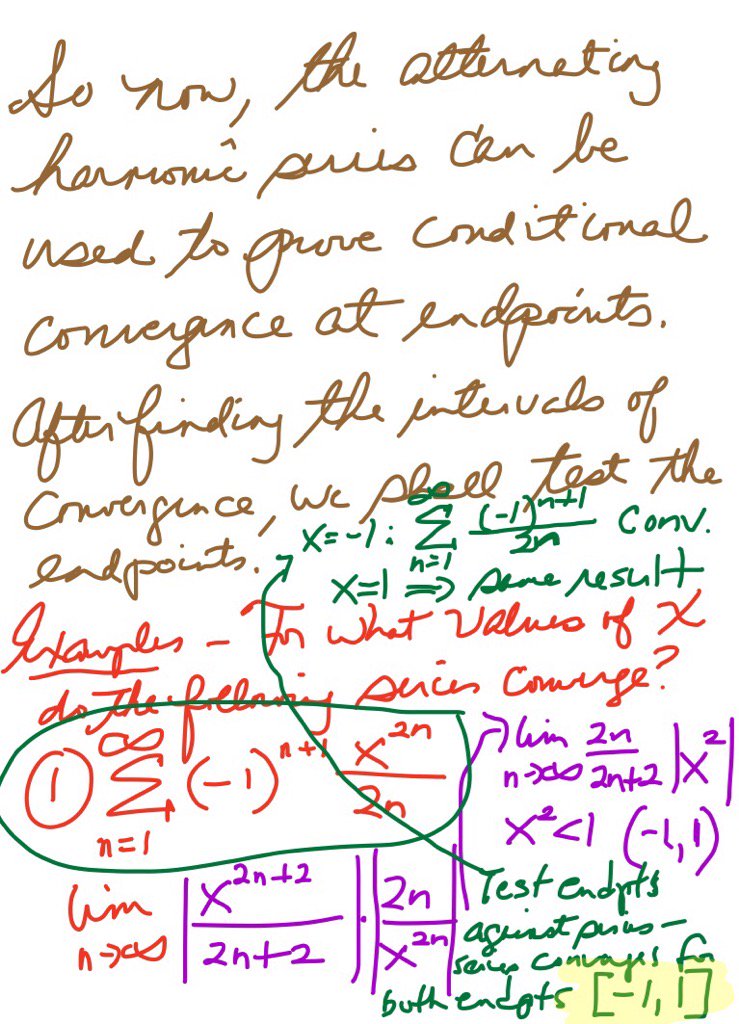 So now, the alternating
harmonic series can be
used to prove conditional
convergence at endpoints.
After finding the intervals of
convergence, we shall test the
endpoints.
x=-1: ∞∑n=1 (-1)^(n+1)/2n Conv.
x=1 ⟹ same result
Examples - For what values of x
do the following series converge?
① ∞∑n=1 (-1)^(n+1) x^(2n)/2n
lim n→∞ |x^(2n+2)/(2n+2)| · |2n/x^(2n)|
lim n→∞ 2n/(2n+2) |x^2|
x^2<1 (-1,1)
Test endpts
against series -
series converges for
both endpts [-1,1]